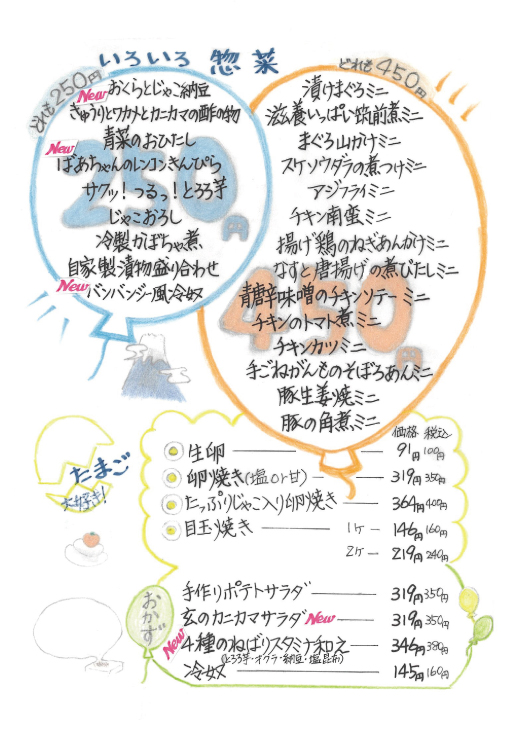 いろいろ 惣菜
どれも250円
250円
New おくらとじゃこ納豆
きゅうりとワカメとカニカマの酢の物
青菜のおひたし
New ばあちゃんのレンコンきんぴら
サクッ！つるっ！とろろ芋
じゃこおろし
冷製かぼちゃ煮
自家製漬物盛り合わせ
New バンバンジー風冷奴
どれも450円
450円
漬けまぐろミニ
滋養いっぱい筑前煮ミニ
まぐろ山かけミニ
スケソウダラの煮つけミニ
アジフライミニ
チキン南蛮ミニ
揚げ鶏のねぎあんかけミニ
なすと唐揚げの煮びたしミニ
青唐辛味噌のチキンソテーミニ
チキンのトマト煮ミニ
チキンカツミニ
手ごねがんものそぼろあんミニ
豚生姜焼ミニ
豚の角煮ミニ
たまご
大好き！
価格 税込
生卵 91円 100円
卵焼き(塩or甘) 319円 350円
たっぷりじゃこ入り卵焼き 364円 400円
目玉焼き 1ケ 146円 160円
2ケ 219円 240円
おかず
手作りポテトサラダ 319円 350円
玄のカニカマサラダ New 319円 350円
New 4種のねばりスタミナ和え 346円 380円
(とろろ芋・オクラ・納豆・塩昆布)
冷奴 145円 160円